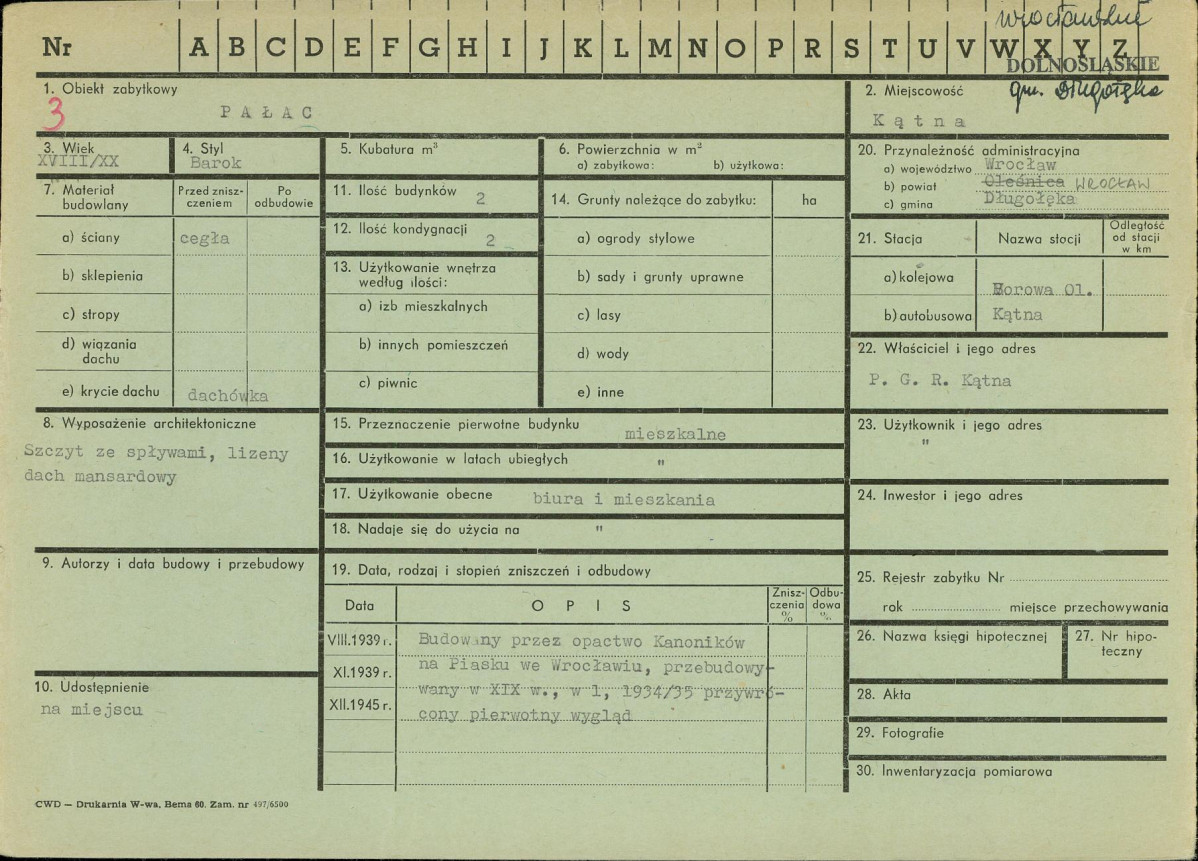 wrocławskie
Nr A B C D E F G H I J K L M N O P R S T U V W X Y Z
DOLNOŚLĄSKIE
gm. Długołęka
1. Obiekt zabytkowy
3
PAŁAC
2. Miejscowość
Kątna
3. Wiek
XVIII/XX
4. Styl
Barok
5. Kubatura m³
6. Powierzchnia w m²
a) zabytkowa: b) użytkowa:
20. Przynależność administracyjna
a) województwo Wrocław
b) powiat Oleśnica WROCŁAW
c) gmina Długołęka
7. Materiał budowlany
Przed znisz-
czeniem
Po
odbudowie
a) ściany cegła
b) sklepienia
c) stropy
d) wiązania
dachu
e) krycie dachu dachówka
11. Ilość budynków 2
12. Ilość kondygnacji 2
13. Użytkowanie wnętrza
według ilości:
a) izb mieszkalnych
b) innych pomieszczeń
c) piwnic
14. Grunty należące do zabytku: ha
a) ogrody stylowe
b) sady i grunty uprawne
c) lasy
d) wody
e) inne
21. Stacja Nazwa stocji
Odległość
od stacji
w km
a) kolejowa Borowa Ol.
b) autobusowa Kątna
22. Właściciel i jego adres
P. G. R. Kątna
8. Wyposażenie architektoniczne
Szczyt ze spływami, lizeny
dach mansardowy
15. Przeznaczenie pierwotne budynku mieszkalne
16. Użytkowanie w latach ubiegłych "
17. Użytkowanie obecne biura i mieszkania
18. Nadaje się do użycia na "
23. Użytkownik i jego adres
"
24. Inwestor i jego adres
9. Autorzy i data budowy i przebudowy
19. Data, rodzaj i stopień zniszczeń i odbudowy
Data OPIS
Znisz-
czenia
%
Odbu-
dowa
%
VIII.1939 r.
XI.1939 r.
XII.1945 r.
Budowany przez opactwo Kanoników
na Piasku we Wrocławiu, przebudowy-
wany w XIX w., w l, 1934/35 przywró-
cony pierwotny wygląd
25. Rejestr zabytku Nr
rok miejsce przechowywania
26. Nazwa księgi hipotecznej
27. Nr hipo-
teczny
10. Udostępnienie
na miejscu
28. Akta
29. Fotografie
30. Inwentaryzacja pomiarowa
CWD — Drukarnia W-wa, Bema 60. Zam. nr 497/6500